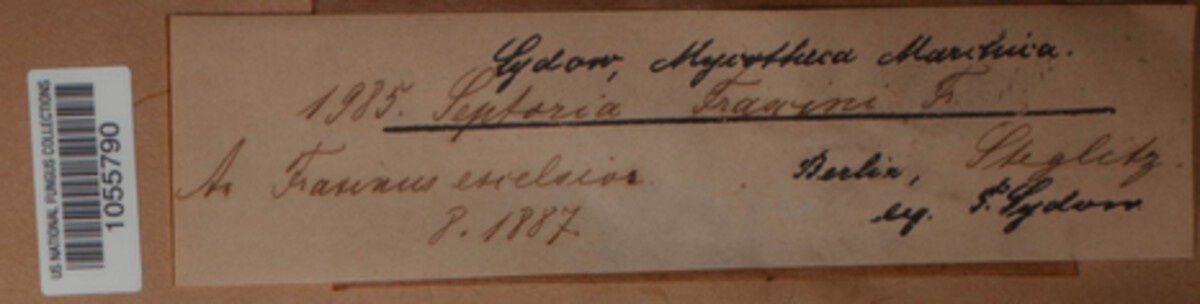 US NATIONAL FUNGUS COLLECTIONS
1055790
Sydow, Mycotheca Marchica.
1985. Septoria Fraxini F.
An Fraxinus excelsior. Berlin, Steglitz.
8. 1887. leg. P. Sydow